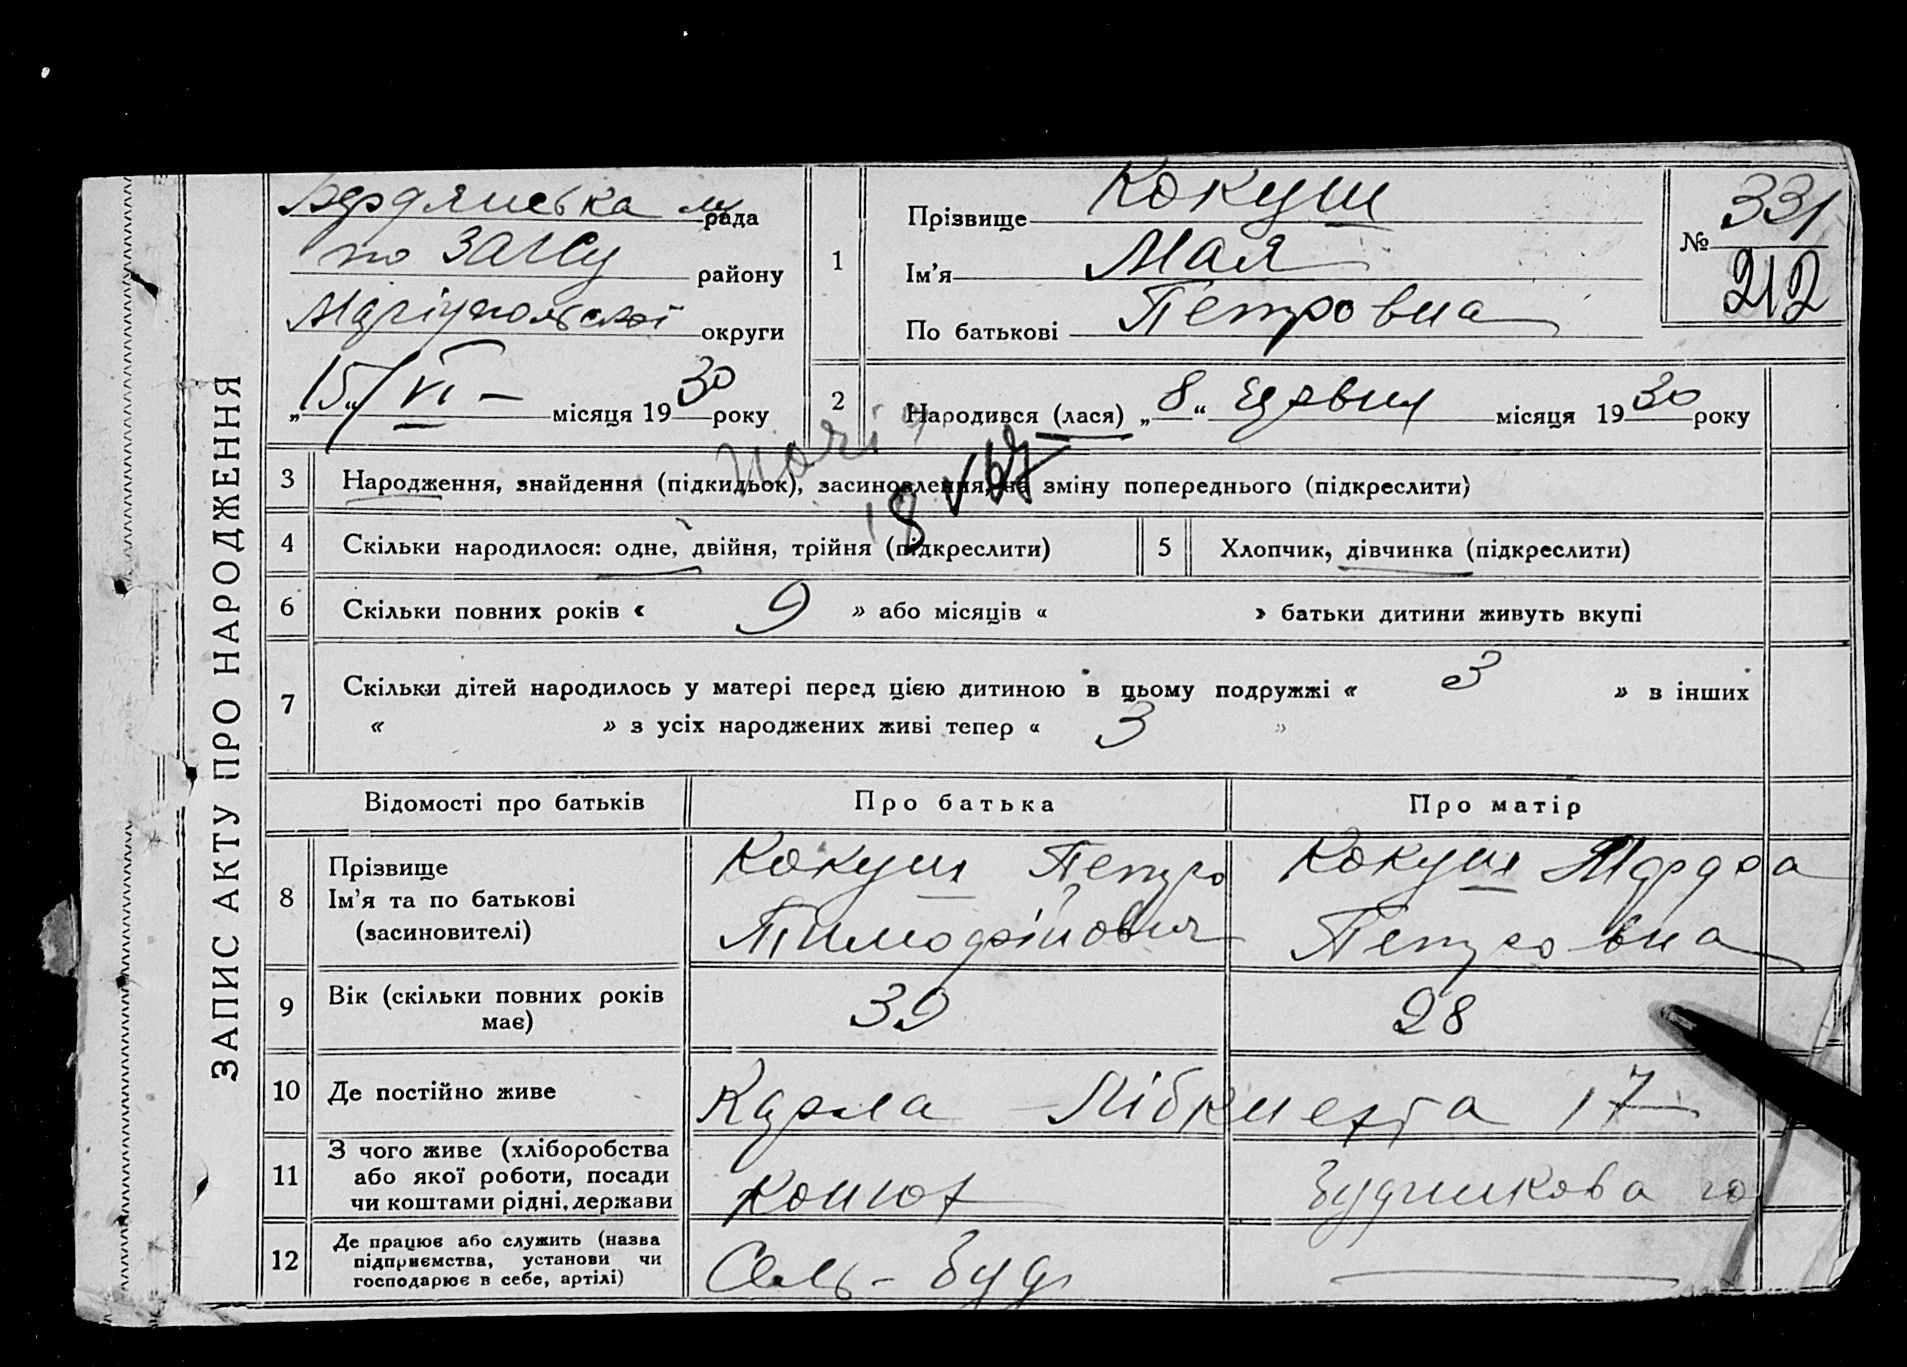 ЗАПИС АКТУ ПРО НАРОДЖЕННЯ
Бердянська м рада
по ЗАГСу району
Маріупольської округи
„15“ VI - місяця 1930 року
1
Прізвище Кокуш
Ім’я Мая
По батькові Петровна
№ 331
212
2 Народився (лася) „8“ червня місяця 1930 року
3 Народження, знайдення (підкидьок), засиновлення, на зміну попереднього (підкреслити)
4 Скільки народилося: одне, двійня, трійня (підкреслити) 5 Хлопчик, дівчинка (підкреслити)
6 Скільки повних років « 9 » або місяців « » батьки дитини живуть вкупі
7 Скільки дітей народилось у матері перед цією дитиною в цьому подружжі « 3 » в інших
« » з усіх народжених живі тепер « 3 »
Відомості про батьків Про батька Про матір
8 Прізвище
Ім’я та по батькові
(засиновителі)
Кокуш Петро
Тимофійович
Кокуш Марфа
Петровна
9 Вік (скільки повних років
має)
39 28
10 Де постійно живе Карла Лібкнехта 17
11 З чого живе (хліборобства
або якої роботи, посади
чи коштами рідні, держави
конюх
12 Де працює або служить (назва
підприємства, установи чи
господарює в себе, артілі)
Сель-буд